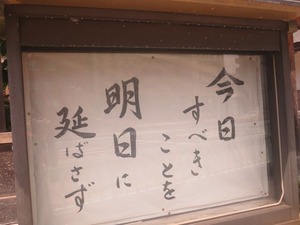 今日
すべき
ことを
明日に
延ばさず